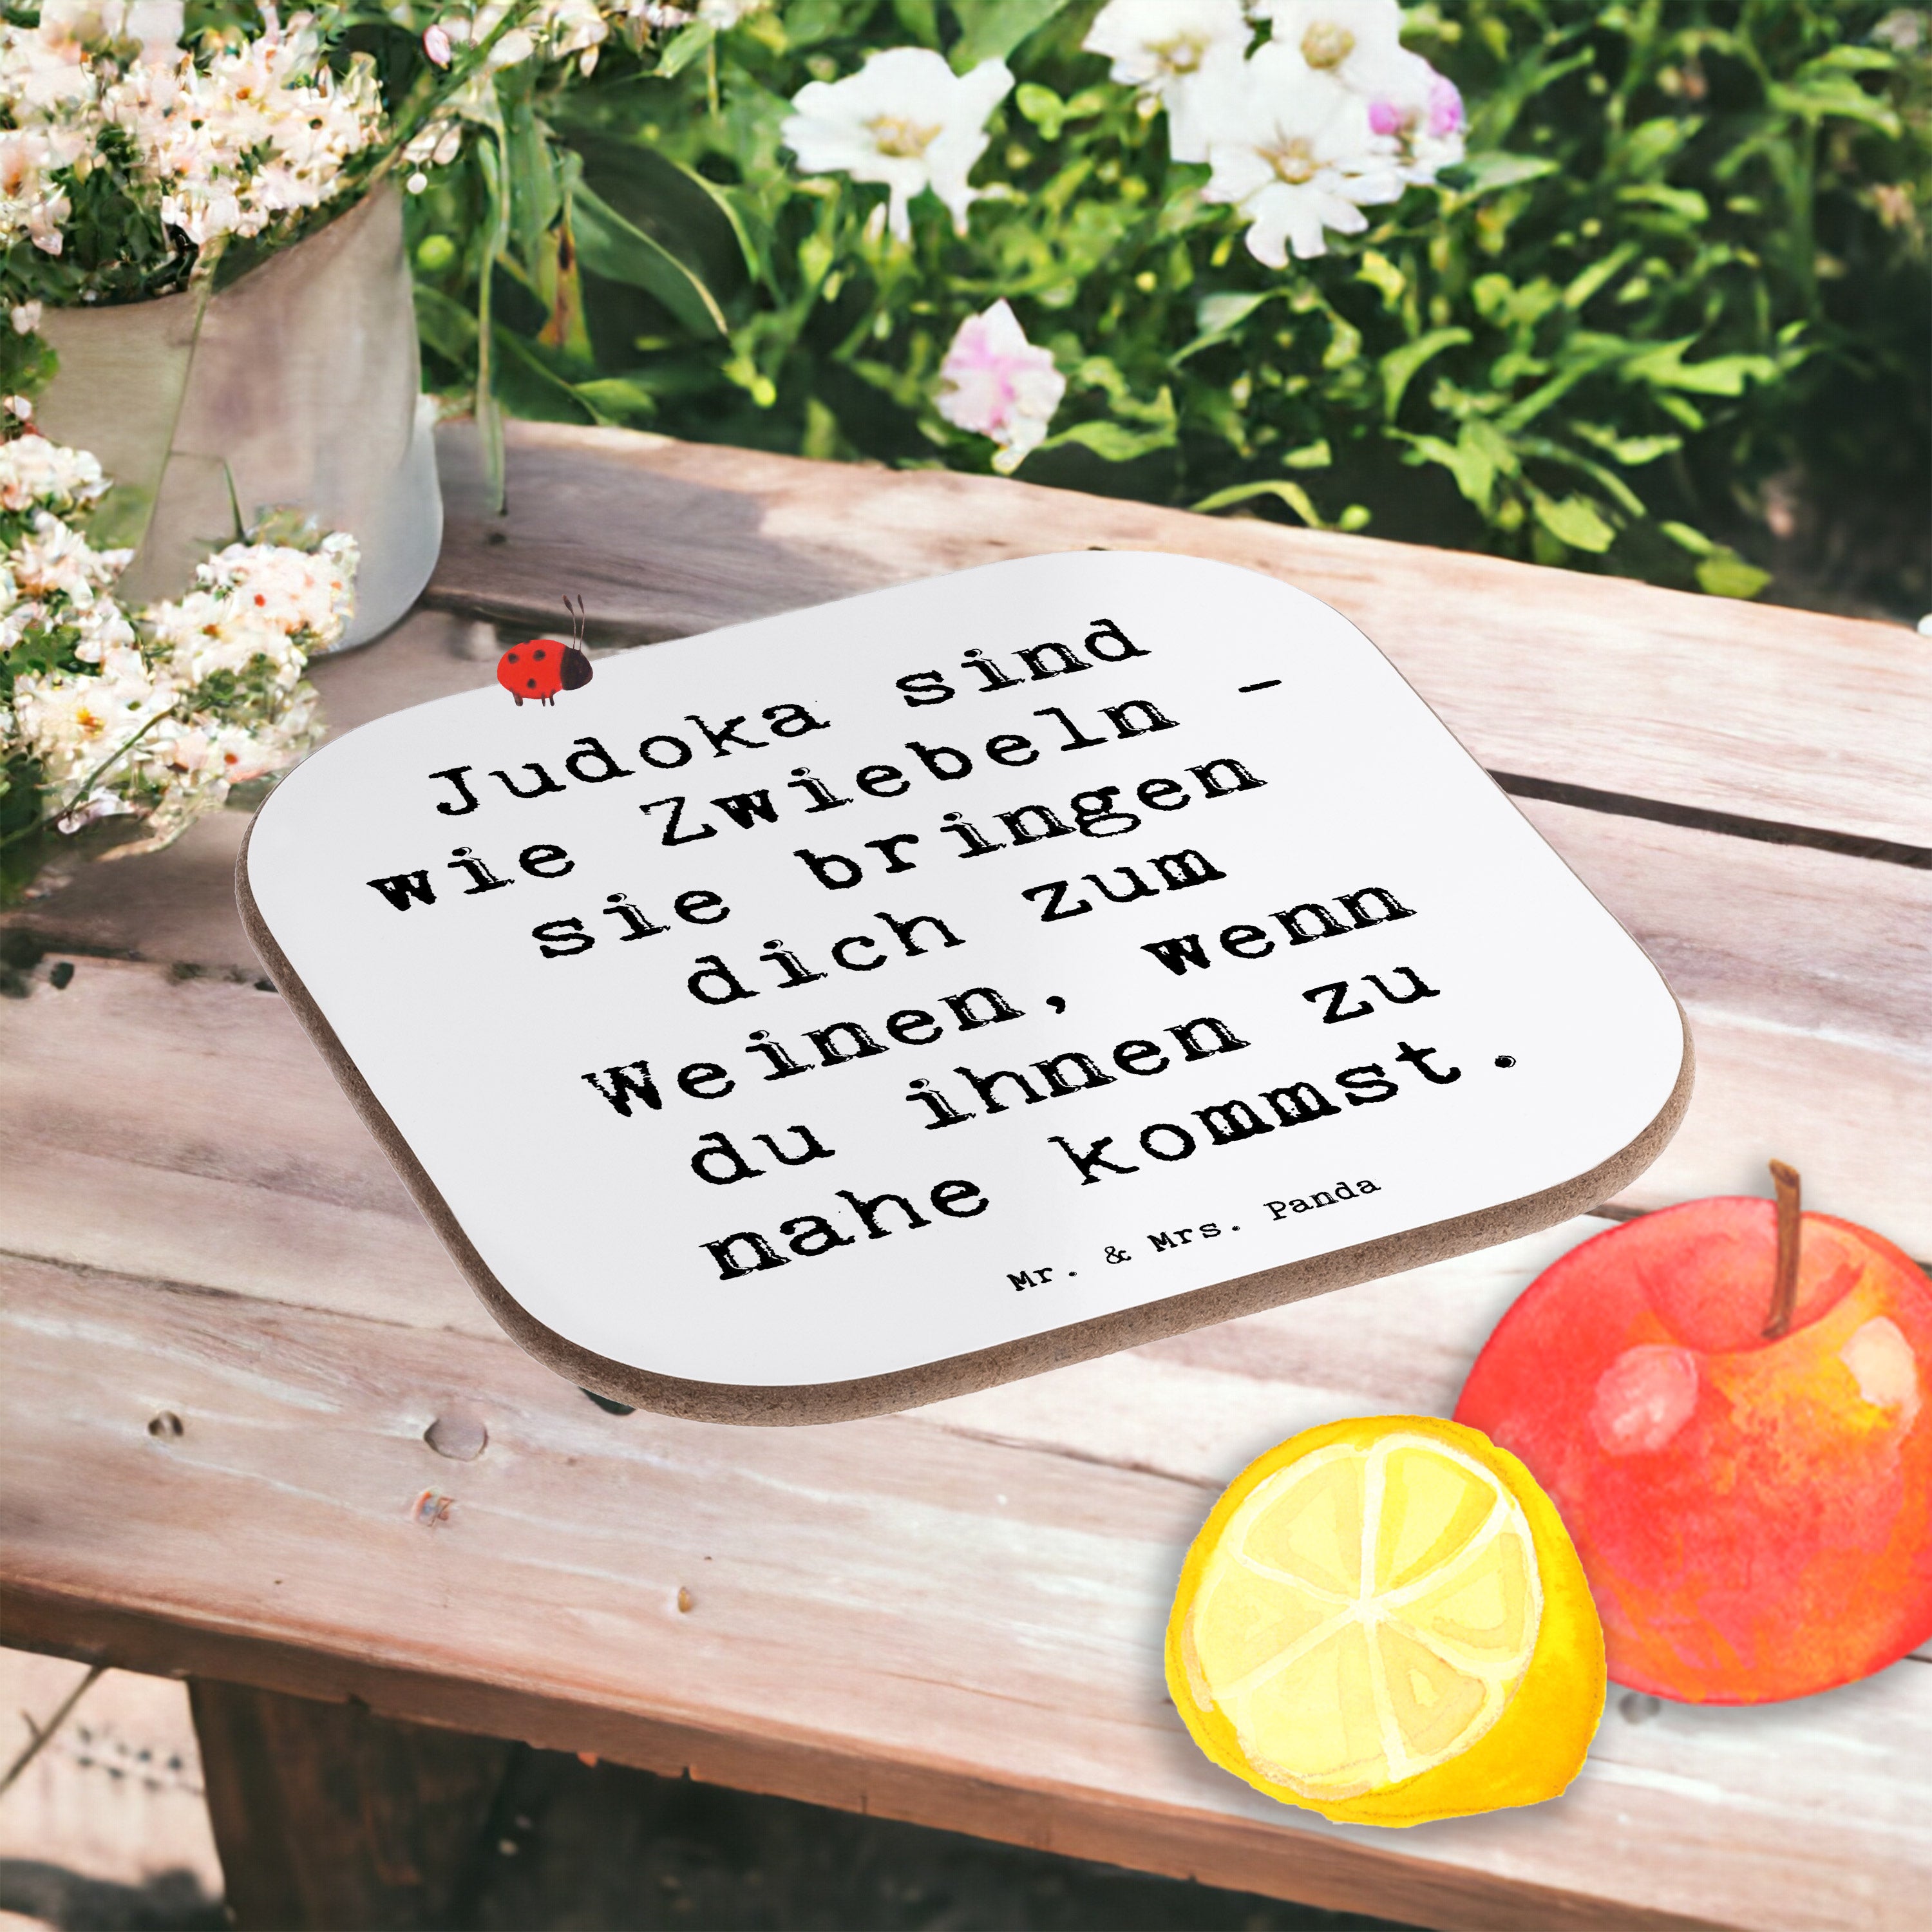 Judoka sind
wie Zwiebeln -
sie bringen
dich zum
Weinen, wenn
du ihnen zu
nahe kommst.
Mr. & Mrs. Panda